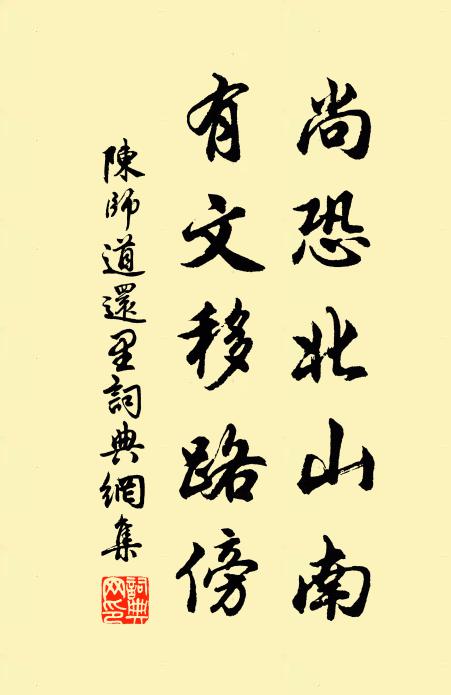 尚恐北山南
有文移路傍
陳師道還里詞典網集
詞典網印